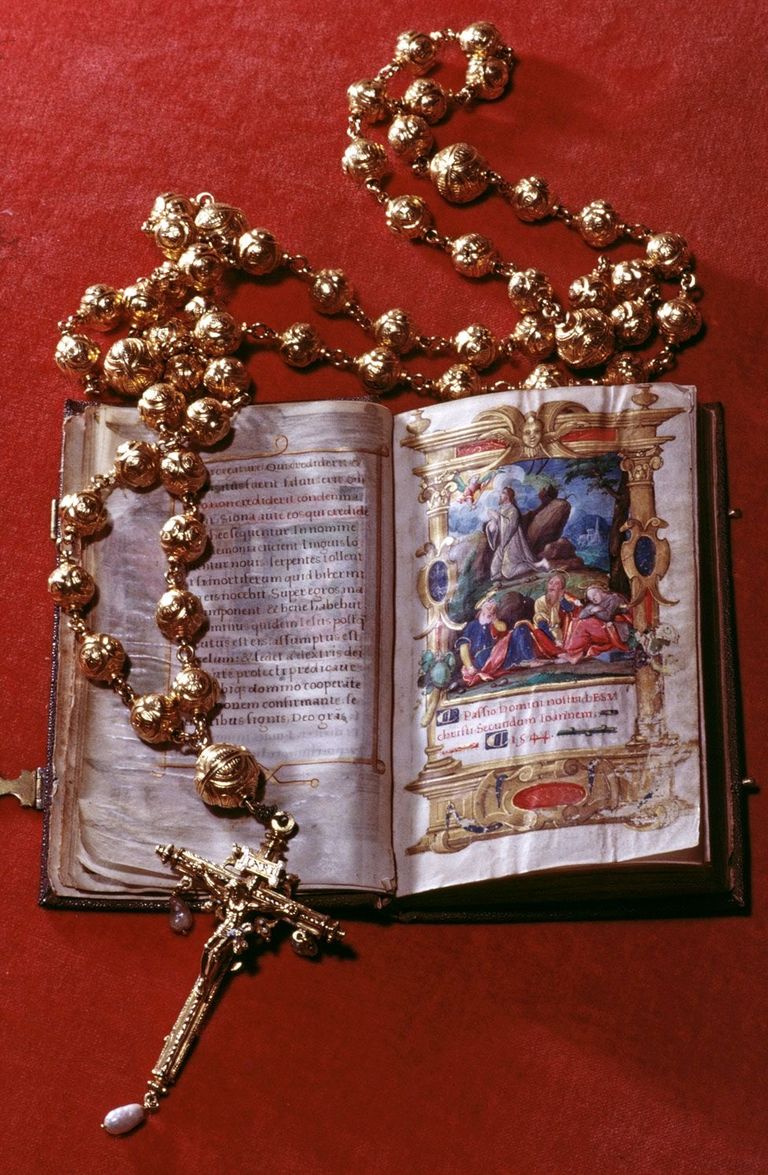 Qui crediderit &
fuerit saluus erit Qui
non crediderit condemna
Signa autē eos qui credide
sequentur. In nomine
emonia eicient linguis lo
entur nouis serpentes tollent
si mortiferum quid biberint
eis nocebit. Super egros ma
imponent & bene habebūt
minus quidem Iesus postq
cutus est eis: assumptus est
elum: & sedet a dextris dei
aute profecti predicaue
bique domino cooperāte
onem confirmante. se
tibus signis. Deo gras
Passio Domini nostri IESV
christi Secundum Ioannem.
1544.
INRI